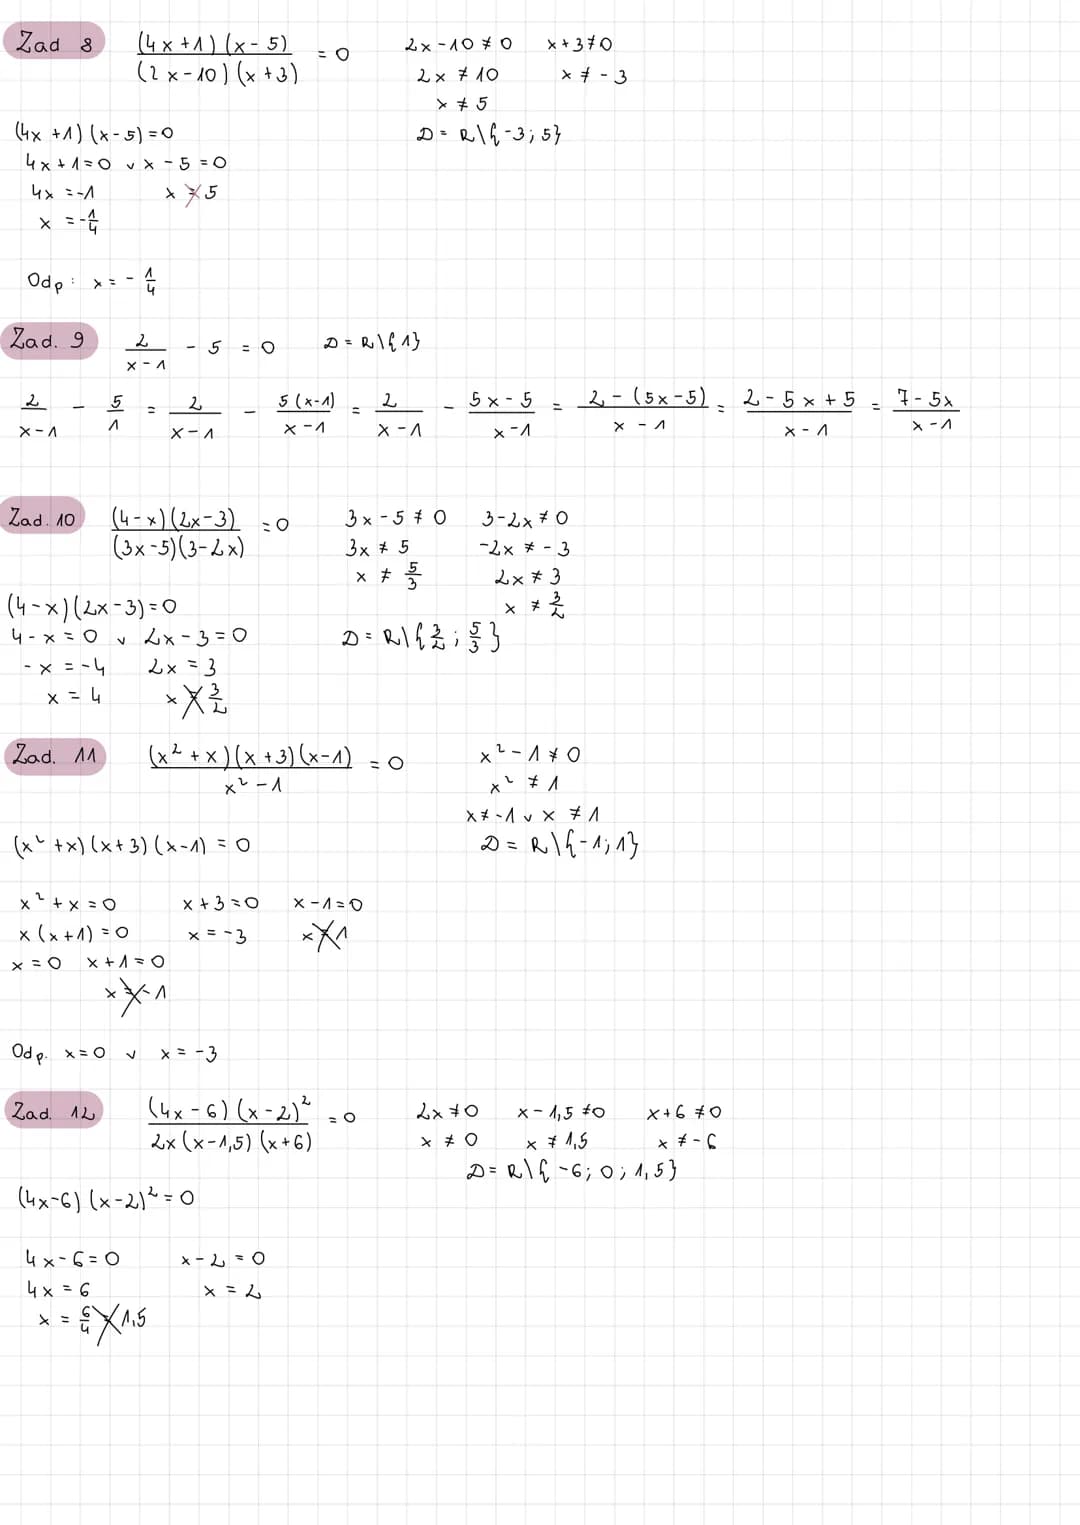 Zad 8 (4x+1)(x-5)/(2x-10)(x+3) = 0 2x-10≠0 x+3≠0
2x≠10 x≠-3
x≠5
(4x+1)(x-5)=0 D=R\{-3;5}
4x+1=0 v x-5=0
4x=-1 x=5
x=-1/4
Odp: x=-1/4
Zad. 9 2/x-1 - 5 = 0 D=R\{1}
2/x-1 - 5/1 = 2/x-1 - 5(x-1)/x-1 = 2/x-1 - 5x-5/x-1 = 2-(5x-5)/x-1 = 2-5x+5/x-1 = 7-5x/x-1
Zad. 10 (4-x)(2x-3)/(3x-5)(3-2x) = 0 3x-5≠0 3-2x≠0
3x≠5 -2x≠-3
x≠5/3 2x≠3
(4-x)(2x-3)=0 x≠3/2
4-x=0 v 2x-3=0 D=R\{3/2;5/3}
-x=-4 2x=3
x=4 x=3/2
Zad. 11 (x²+x)(x+3)(x-1)/x²-1 = 0 x²-1≠0
x²≠1
x≠-1 v x≠1
(x²+x)(x+3)(x-1)=0 D=R\{-1;1}
x²+x=0 x+3=0 x-1=0
x(x+1)=0 x=-3 x=1
x=0 x+1=0
x=-1
Odp. x=0 v x=-3
Zad. 12 (4x-6)(x-2)²/2x(x-1,5)(x+6) = 0 2x≠0 x-1,5≠0 x+6≠0
x≠0 x≠1,5 x≠-6
D=R\{-6;0;1,5}
(4x-6)(x-2)²=0
4x-6=0 x-2=0
4x=6 x=2
x=6/4=1,5